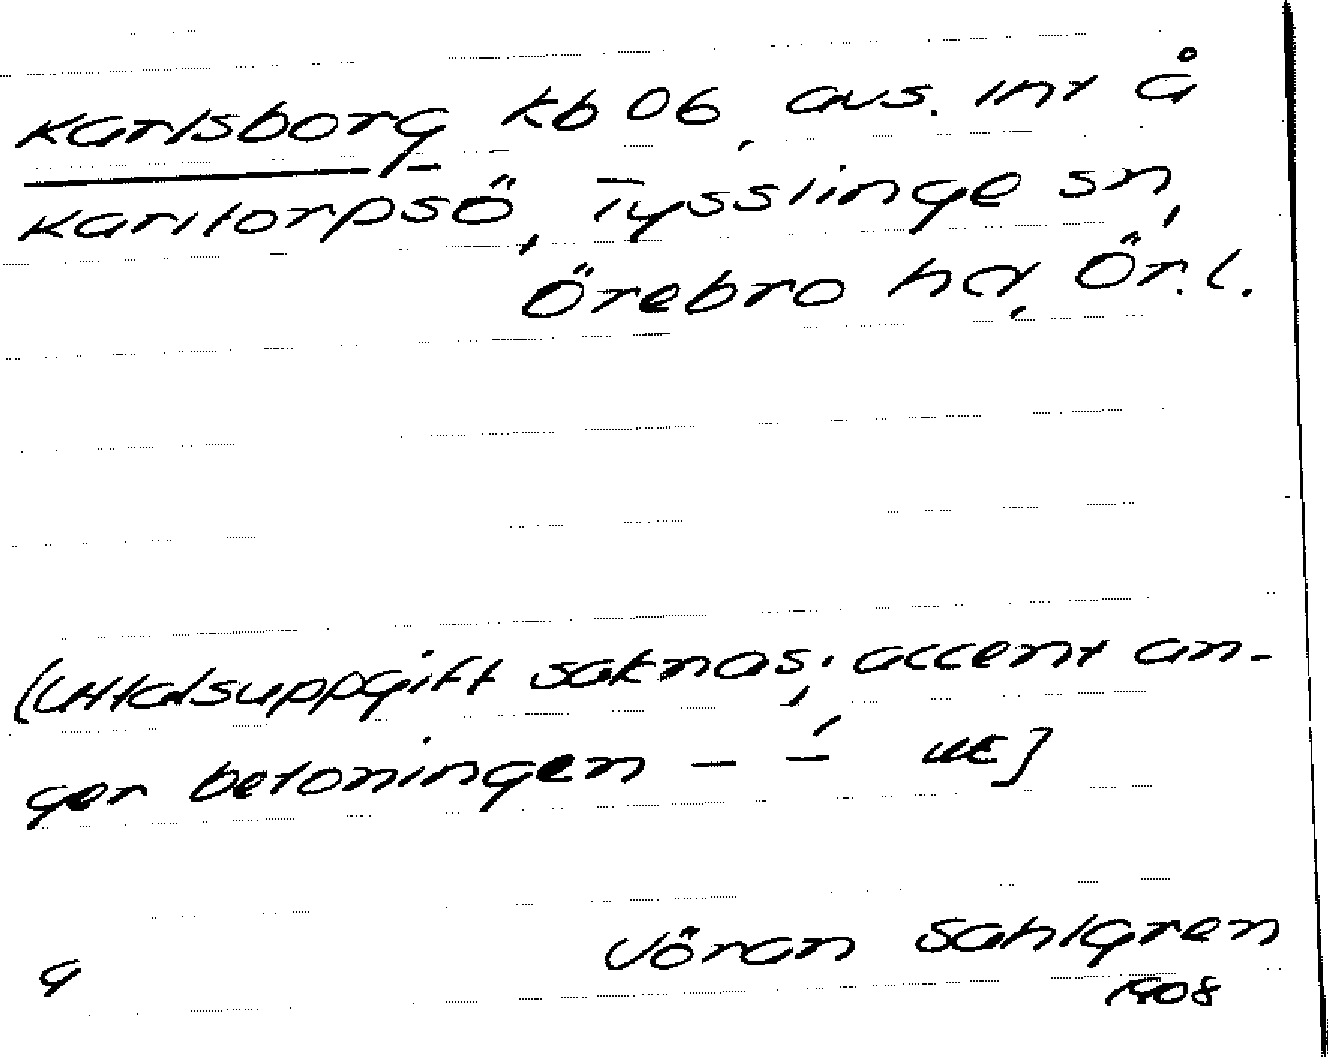 Karlsborg kb 06, avs. int å
Karltorpsö, Tysslinge sn,
Örebro hd, Ör. l.
(Uttalsuppgift saknas; accent an-
ger betoningen – –́ ]
Jöran Sahlgren
1908